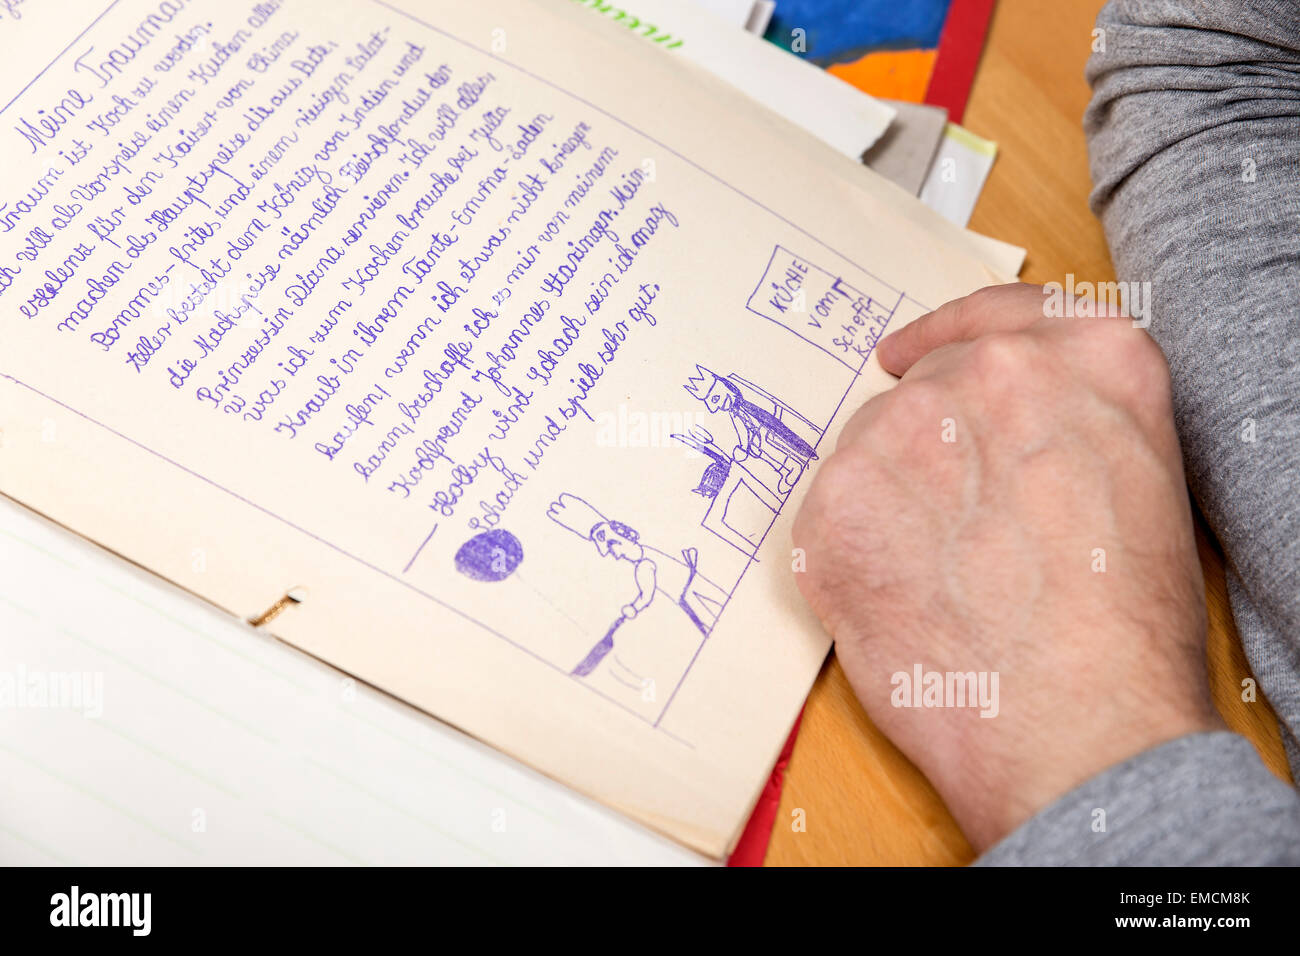 Meine Trauma
Traum ist Koch zu werden.
ich will als Vorspeise einen Kuchen allen
Holenz für den Kaiser von China
machen als Hauptspeise die aus Pute,
Pommes-frites und einem riesigen Salat-
teller besteht dem König von Indien und
die Nachspeise nämlich Fleischfondue der
Prinzessin Diana servieren. Ich will alles,
was ich zum Kochen brauche bei Julia
Kraub in ihrem Tante-Emma-Laden
kaufen, wenn ich etwas nicht kriegen
kann, beschaffe ich es mir von meinem
Kochfreund Johannes Staringer. Mein
Hobby wird Schach sein ich mag
Schach und spiele sehr gut.
KÜCHE
VOM
Scheff
Koch
alamy
alamy
Image ID: EMCM8K
www.alamy.com